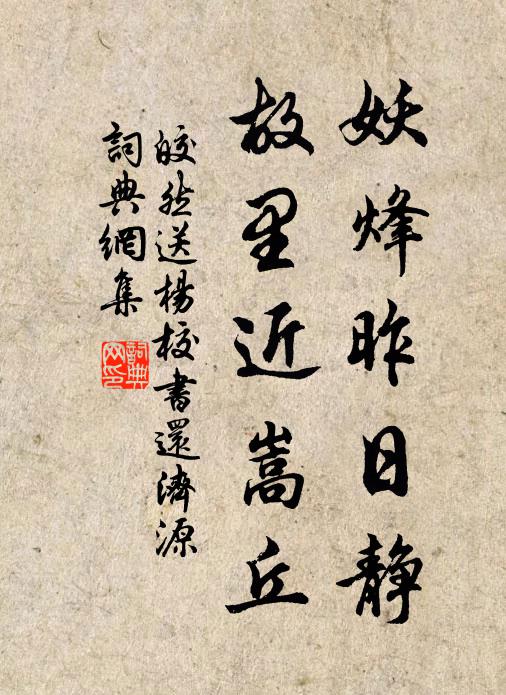 妖烽昨日静
故里近嵩丘
皎然送楊校書還濟源
詞典網集
詞典网印